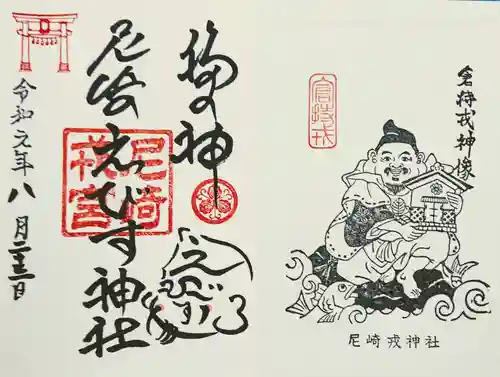 宮持戎
宮持戎神像
尼崎戎神社
福の神
尼崎えびす神社
尼崎戎宮
えびす
令和元年八月二十三日